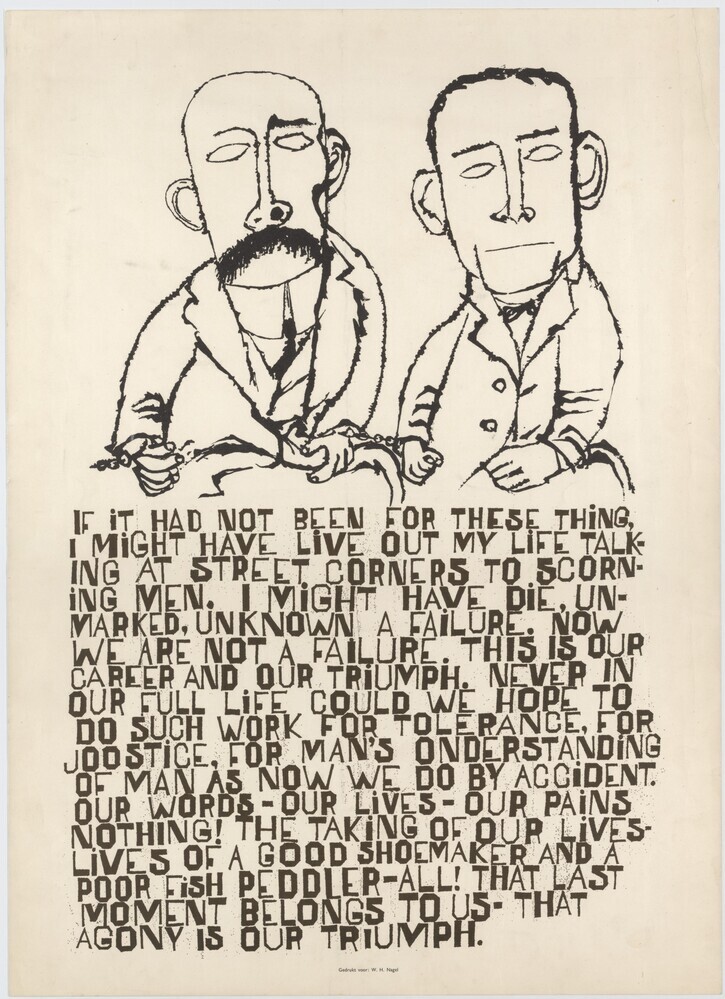 IF iT HAD NOT BEEN FOR THESE THiNG,
I MiGHT HAVE LiVE OUT MY LiFE TALK-
ING AT STREET CORNERS TO SCORN-
iNG MEN. I MiGHT HAVE DiE, UN-
MARKED, UNKNOWN A FAiLURE. NOW
WE ARE NOT A FAiLURE. THiS iS OUR
CAREER AND OUR TRiUMPH. NEVER IN
OUR FULL LiFE COULD WE HOPE TO
DO SUCH WORK FOR TOLERANCE, FOR
JOOSTICE, FOR MAN'S ONDERSTANDiNG
OF MAN AS NOW WE DO BY ACCiDENT.
OUR WORDS - OUR LiVES - OUR PAiNS
NOTHiNG! THE TAKiNG OF OUR LiVES-
LiVES OF A GOOD SHOEMAKER AND A
POOR FiSH PEDDLER-ALL! THAT LAST
MOMENT BELONGS TO US- THAT
AGONY iS OUR TRiUMPH.
Gedrukt voor: W. H. Nagel